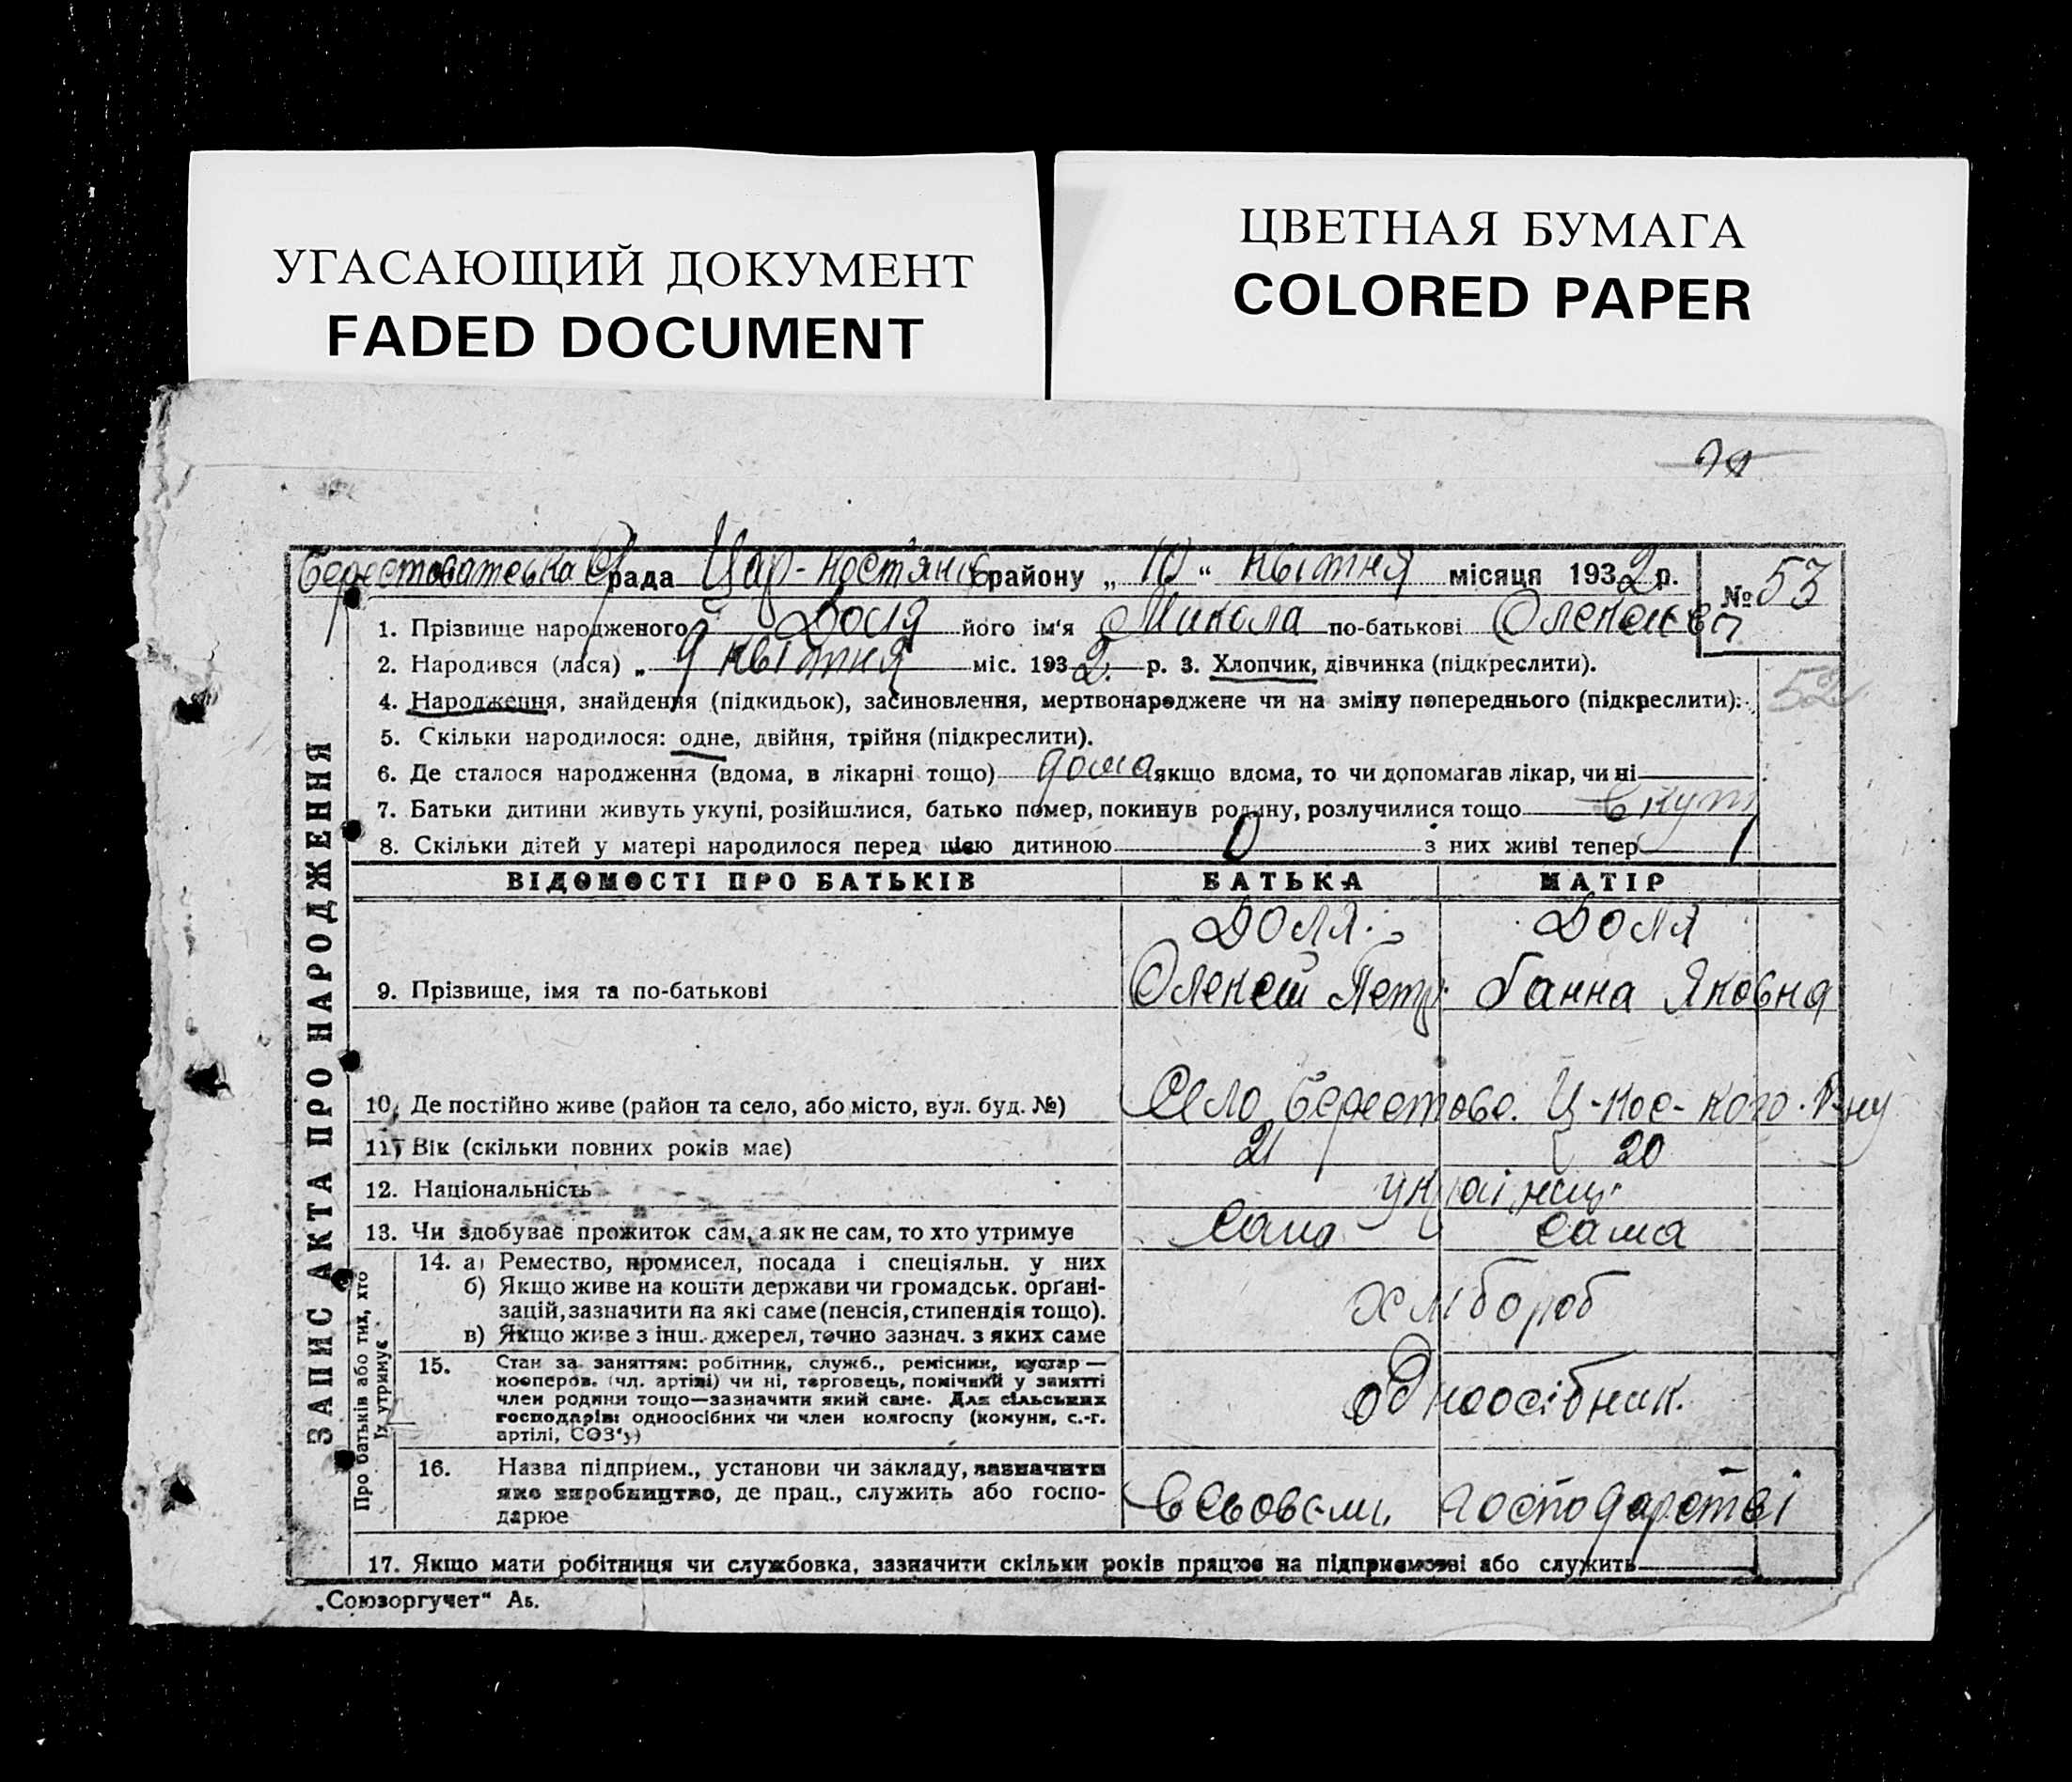 УГАСАЮЩИЙ ДОКУМЕНТ
FADED DOCUMENT
ЦВЕТНАЯ БУМАГА
COLORED PAPER
Берестоватська С/рада Цар-Костянів району „ 10 “ квітня місяця 1932 р.
№ 53
1. Прізвище народженого Доля його ім'я Микола по-батькові Олексієв
2. Народився (лася) „ 9 квітня міс. 1932. р. 3. Хлопчик, дівчинка (підкреслити).
52
4. Народження, знайдення (підкидьок), засиновлення, мертвонароджене чи на зміну попереднього (підкреслити):
5. Скільки народилося: одне, двійня, трійня (підкреслити).
6. Де сталося народження (вдома, в лікарні тощо) дома якщо вдома, то чи допомагав лікар, чи ні
7. Батьки дитини живуть укупі, розійшлися, батько помер, покинув родину, розлучилися тощо
8. Скільки дітей у матері народилося перед цією дитиною 0 з них живі тепер 1
ВІДОМОСТІ ПРО БАТЬКІВ БАТЬКА МАТІР
Доля Доля
9. Прізвище, імя та по-батькові Олексій Петр. Ганна Яковна
10. Де постійно живе (район та село, або місто, вул. буд. №) Село Берестове. Ц-Кос-кого. Р-ну
11. Вік (скільки повних років має) 21 20
12. Національність україн.
13. Чи здобуває прожиток сам, а як не сам, то хто утримує сама
14. а) Ремество, промисел, посада і спеціяльн. у них
б) Якщо живе на кошти держави чи громадськ. орґані-
зацій, зазначити на які саме (пенсія, стипендія тощо).
в) Якщо живе з інш. джерел, точно зазнач. з яких саме
хлібороб
15. Стан за заняттям: робітник, служб., ремісник, кустар —
кооперов. (чл. артілі) чи ні, торговець, помічний у занятті
член родини тощо—зазначити який саме. Для сільських
господарів: одноосібних чи член колгоспу (комуни, с.-г.
артілі, СОЗ'у)
одноосібник.
16. Назва підприєм., установи чи закладу, зазначити
яке виробництво, де прац., служить або госпо-
дарює
господарстві
17. Якщо мати робітниця чи службовка, зазначити скільки років працює на підприємстві або служить
„Союзоргучет“ Аб.
ЗАПИС АКТА ПРО НАРОДЖЕННЯ
Про батьків або тих, хто
їх утримує